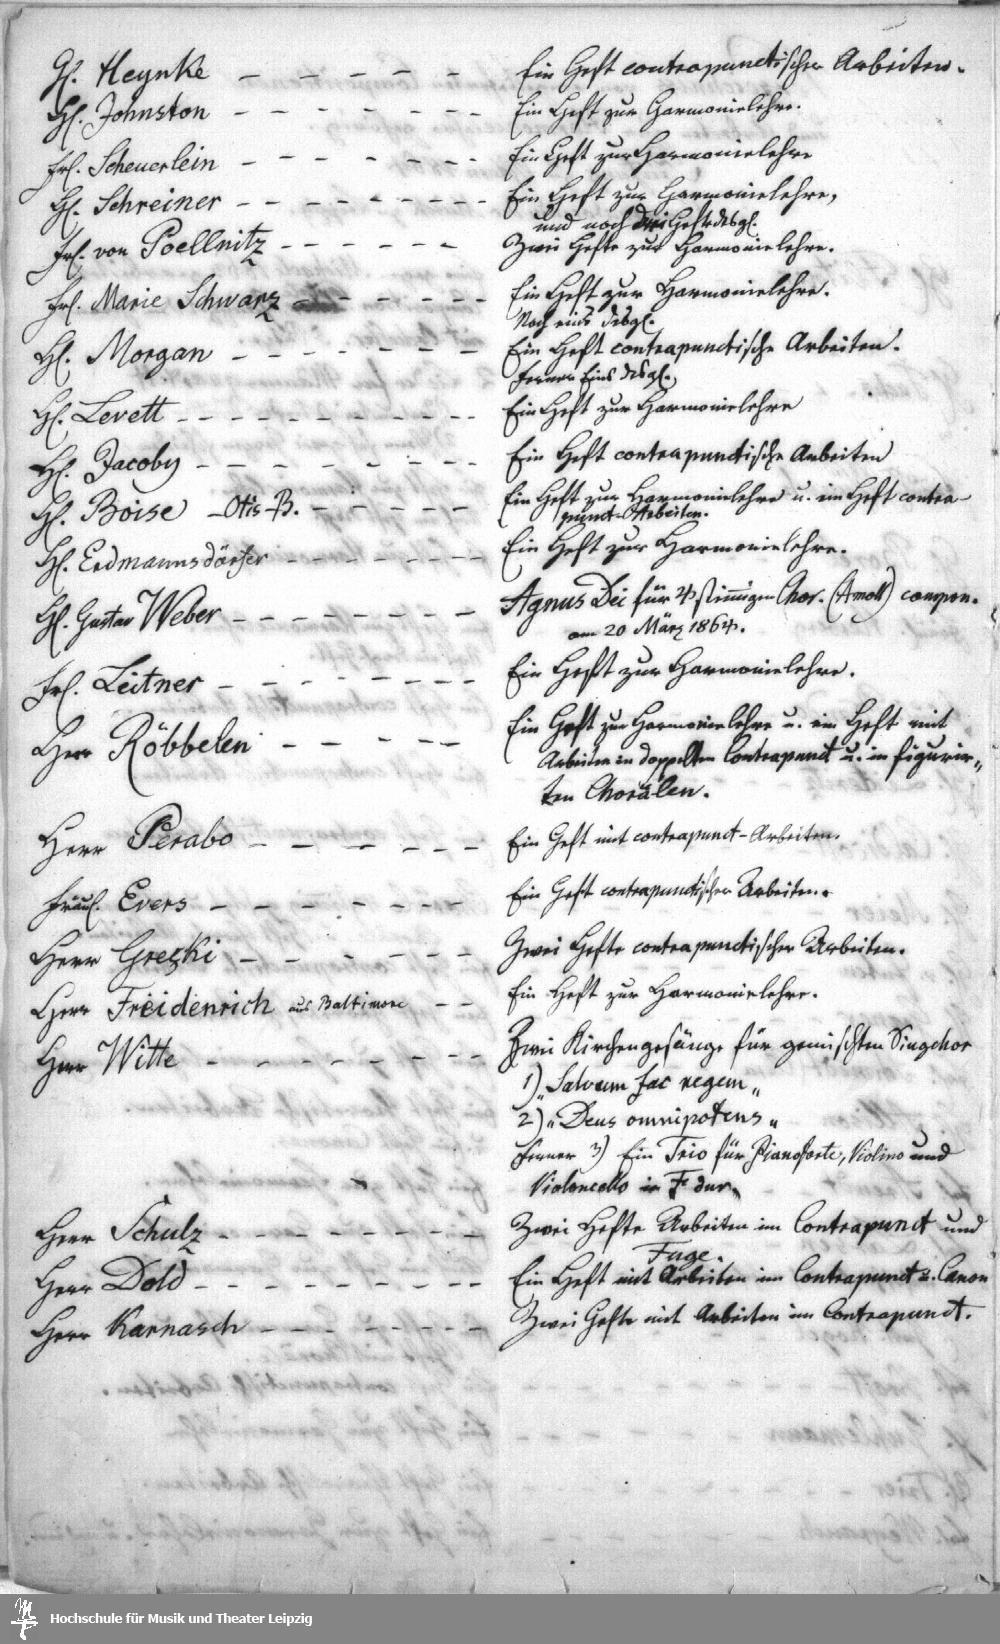 H. Heynke — — — — — Ein Heft contrapunctischer Arbeiten.
H. Johnston — — — — — — Ein Heft zur Harmonielehre.
Frl. Scheuerlein — — — — — — Ein Heft zur Harmonielehre
H. Schreiner — — — — — — — Ein Heft zur Harmonielehre,
und noch drei Hefte desgl.
Frl. von Poellnitz — — — — — Zwei Hefte zur Harmonielehre.
Frl. Marie Schwarz — — — — Ein Heft zur Harmonielehre.
Noch eins desgl.
H. Morgan — — — — — — — Ein Heft contrapunctische Arbeiten.
ferner Eins desgl.
H. Levett — — — — — — — — Ein Heft zur Harmonielehre
H. Jacoby — — — — — — — Ein Heft contrapunctische Arbeiten
H. Boise — Otis-B. — — — — — Ein Heft zur Harmonielehre u. ein Heft contra-
punct-Arbeiten.
H. Erdmannsdörfer — — — — — — Ein Heft zur Harmonielehre.
H. Gustav Weber — — — — — — Agnus Dei für 4stimmigen Chor. (Amoll) compon.
am 20 März 1864.
Frl. Leitner — — — — — — — Ein Heft zur Harmonielehre.
Herr Röbbelen — — — — — Ein Heft zur Harmonielehre u. ein Heft mit
Arbeiten in doppelten Contrapunct u. in figurir-
ten Chorälen.
Herr Perabo — — — — — — Ein Heft mit contrapunct-Arbeiten.
Fräul. Evers — — — — — — — Ein Heft contrapunctischer Arbeiten.
Herr Gretzki — — — — — — Zwei Hefte contrapunctischer Arbeiten.
Herr Freidenrich aus Baltimore — — Ein Heft zur Harmonielehre.
Herr Witte — — — — — — — Zwei Kirchengesänge für gemischten Singchor
1) „Salvum fac regem„
2) „Deus omnipotens„
ferner 3) Ein Trio für Pianoforte, Violino und
Violoncello in F dur.
Herr Schulz — — — — — — — Zwei Hefte Arbeiten im Contrapunct und
Fuge.
Herr Dold — — — — — — — — — Ein Heft mit Arbeiten im Contrapunct u. Canon
Herr Karnasch — — — — — — — Zwei Hefte mit Arbeiten im Contrapunct.
Hochschule für Musik und Theater Leipzig